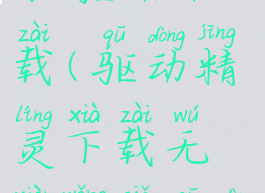 zài qū dòng jīng
载(驱动精
líng xià zài wú
灵下载无